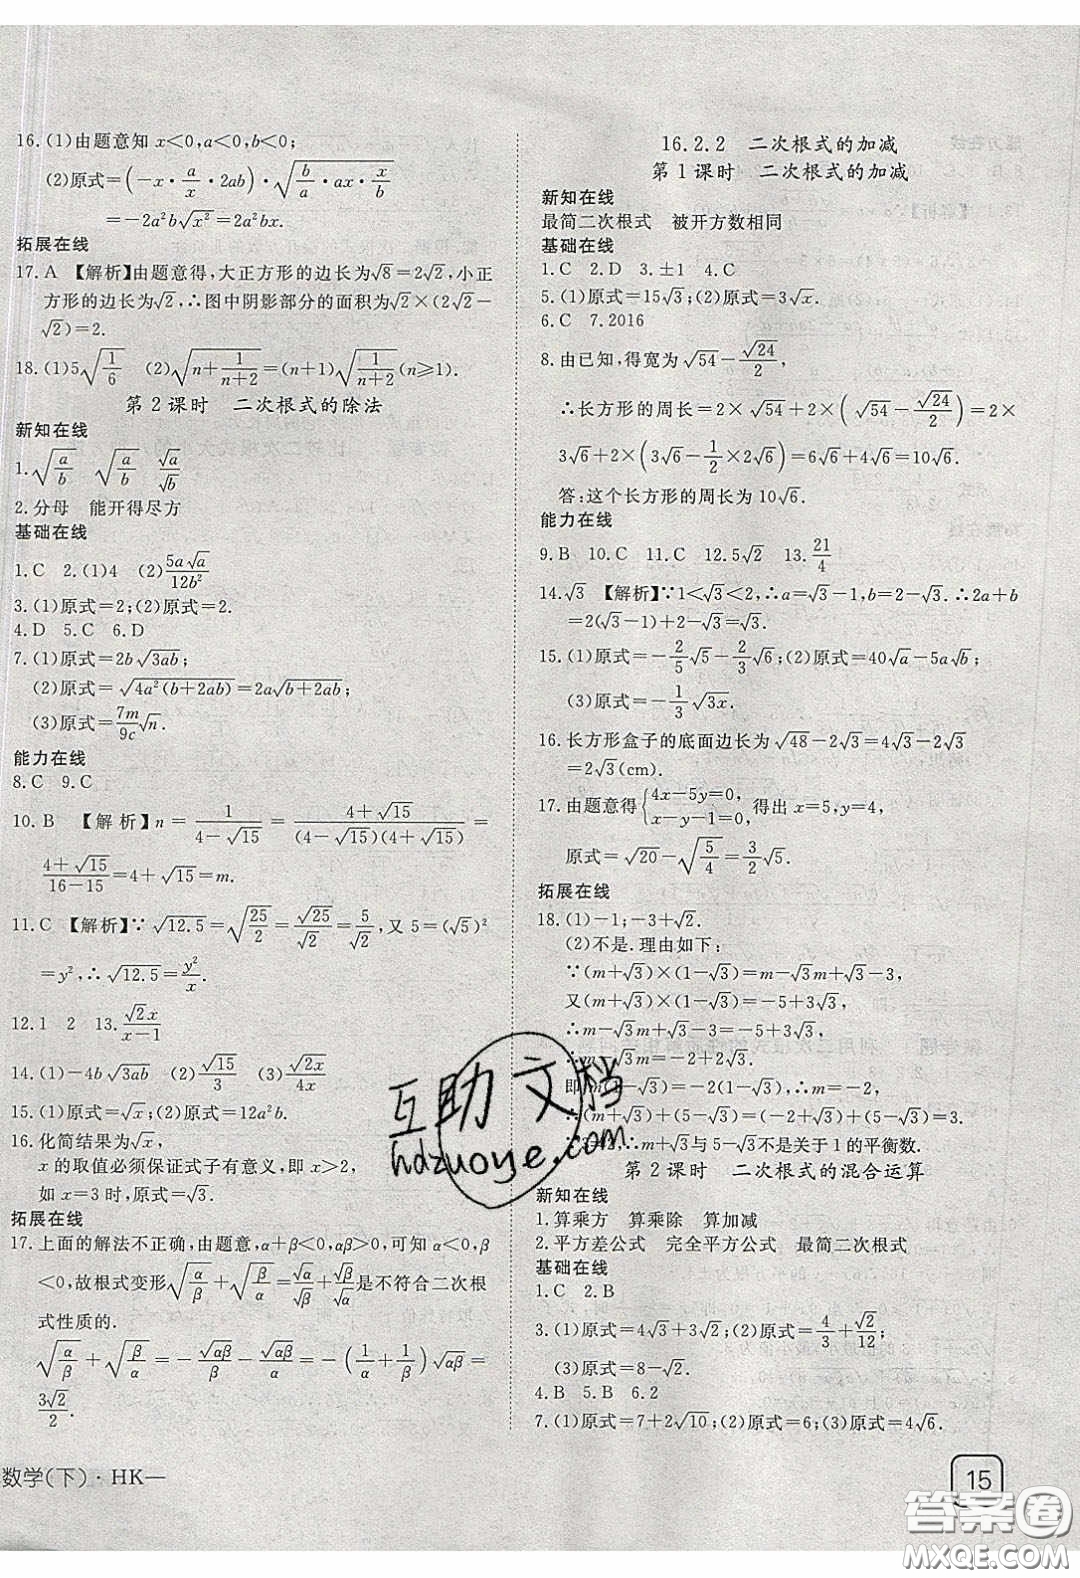 16.(1)由题意知 x<0,a<0,b<0;
(2)原式=(-x·a/x·2ab)·√(b/a·ax·x/b)
=-2a²b√x²=2a²bx.
拓展在线
17.A 【解析】由题意得,大正方形的边长为√8=2√2,小正
方形的边长为√2,∴图中阴影部分的面积为√2×(2√2-
√2)=2.
18.(1)5√(1/6) (2)√(n+1/(n+2))=(n+1)√(1/(n+2))(n≥1).
第2课时 二次根式的除法
新知在线
1.√(a/b) √(a/b) √a/√b
2.分母 能开得尽方
基础在线
1.C 2.(1)4 (2)5a√a/12b²
3.(1)原式=2;(2)原式=2.
4.D 5.C 6.D
7.(1)原式=2b√(3ab);
(2)原式=√(4a²(b+2ab))=2a√(b+2ab);
(3)原式=7m/9c√n.
能力在线
8.C 9.C
10.B 【解析】n=1/(4-√15)=(4+√15)/((4-√15)(4+√15))=
(4+√15)/(16-15)=4+√15=m.
11.C 【解析】∵√12.5=√(25/2)=√25/√2=5/√2,又 5=(√5)²
=y²,∴√12.5=y²/x.
12.1 2 13.√(2x)/(x-1)
14.(1)-4b√(3ab) (2)√15/3 (3)√(30x)/4x
15.(1)原式=√x;(2)原式=12a²b.
16.化简结果为√x,
x的取值必须保证式子有意义,即 x>2,
如 x=3时,原式=√3.
拓展在线
17.上面的解法不正确,由题意,α+β<0,αβ>0,可知 α<0,β
<0,故根式变形√(α/β)+√(β/α)=√α/√β+√β/√α是不符合二次根
式性质的.
√(α/β)+√(β/α)=-√(αβ)/β-√(αβ)/α=-(1/α+1/β)√(αβ)=
3√2/2.
数学(下)·HK—
16.2.2 二次根式的加减
第1课时 二次根式的加减
新知在线
最简二次根式 被开方数相同
基础在线
1.C 2.D 3.±1 4.C
5.(1)原式=15√3;(2)原式=3√x.
6.C 7.2016
8.由已知,得宽为√54-√24/2,
∴长方形的周长=2×√54+2×(√54-√24/2)=2×
3√6+2×(3√6-1/2×2√6)=6√6+4√6=10√6.
答:这个长方形的周长为10√6.
能力在线
9.B 10.C 11.C 12.5√2 13.21/4
14.√3 【解析】∵1<√3<2,∴a=√3-1,b=2-√3.∴2a+b
=2(√3-1)+2-√3=√3.
15.(1)原式=-2/5√5-2/3√6;(2)原式=40√a-5a√b;
(3)原式=-1/3√(3x).
16.长方形盒子的底面边长为√48-2√3=4√3-2√3=
2√3(cm).
17.由题意得{4x-5y=0, x-y-1=0,得出 x=5,y=4,
原式=√20-√(5/4)=3/2√5.
拓展在线
18.(1)-1;-3+√2.
(2)不是.理由如下:
∵(m+√3)×(1-√3)=m-√3m+√3-3,
又(m+√3)×(1-√3)=-5+3√3,
∴m-√3m+√3-3=-5+3√3,
∴m-√3m=-2+2√3.
即m(1-√3)=-2(1-√3),∴m=-2.
∴(m+√3)+(5-√3)=(-2+√3)+(5-√3)=3.
∵3≠2,∴m+√3与5-√3不是关于1的平衡数.
第2课时 二次根式的混合运算
新知在线
1.算乘方 算乘除 算加减
2.平方差公式 完全平方公式 最简二次根式
基础在线
1.C 2.B
3.(1)原式=4√3+3√2;(2)原式=4/3+√2/12;
(3)原式=8-√3.
4.B 5.B 6.2
7.(1)原式=7+2√10;(2)原式=6;(3)原式=4√6.
15
互助文档
hdzuoye.com
答案圈
MXQE.COM